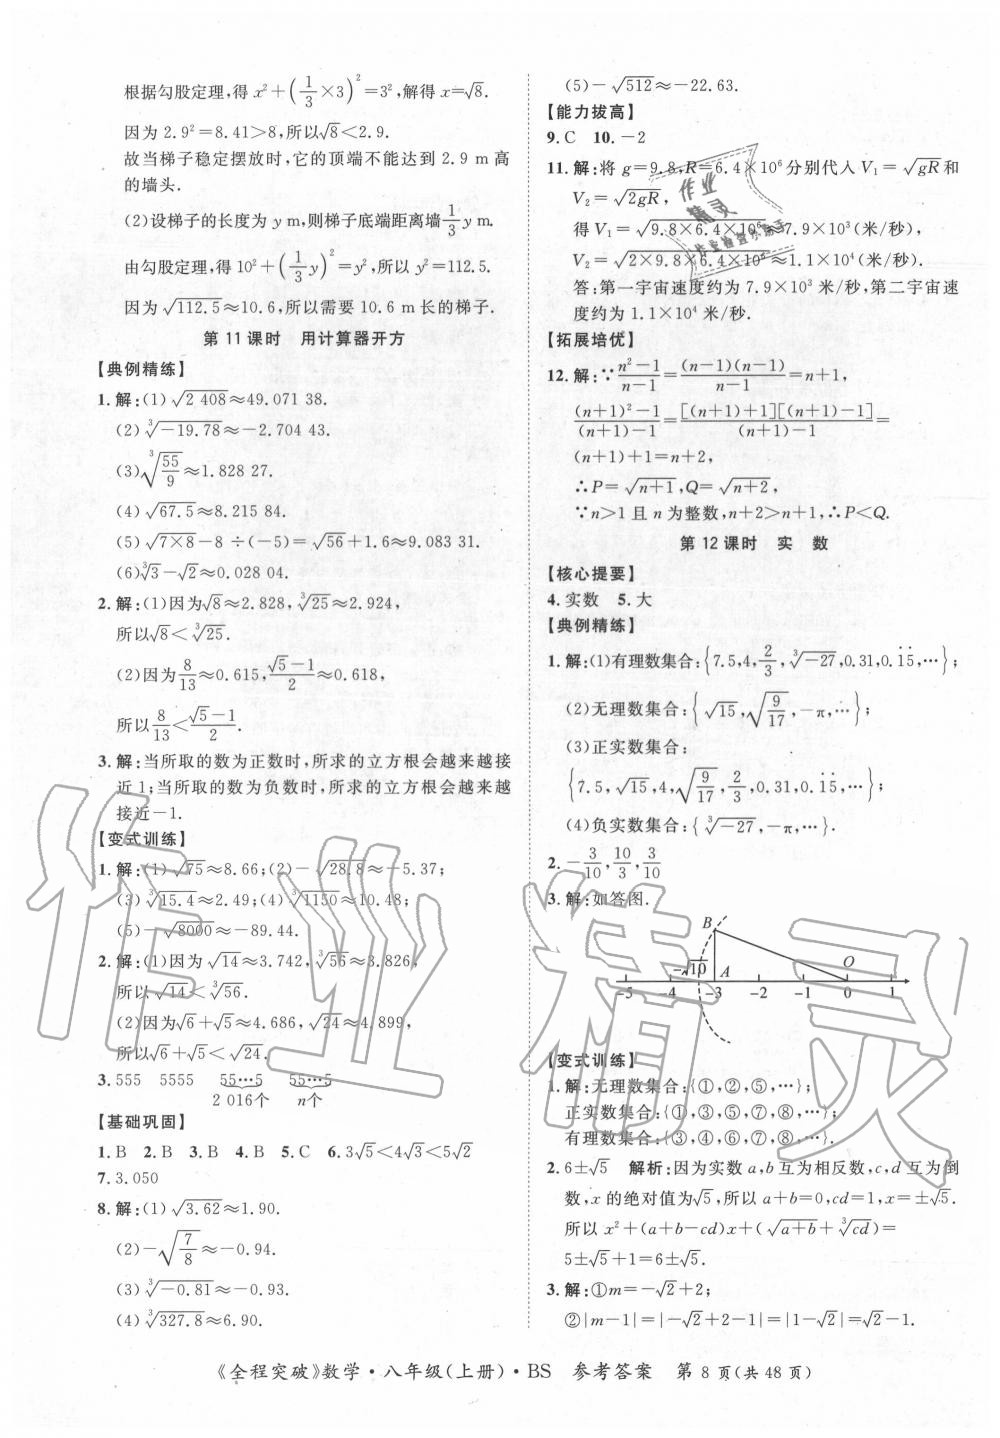 根据勾股定理,得 x²+(1/3×3)²=3²,解得 x=√8.
因为 2.9²=8.41>8,所以√8<2.9.
故当梯子稳定摆放时,它的顶端不能达到 2.9 m高
的墙头.
(2)设梯子的长度为 y m,则梯子底端距离墙1/3y m.
由勾股定理,得 10²+(1/3y)²=y²,所以 y²=112.5.
因为√112.5≈10.6,所以需要 10.6 m 长的梯子.
第 11 课时 用计算器开方
【典例精练】
1.解:(1)√2 408≈49.071 38.
(2)∛-19.78≈-2.704 43.
(3)∛(55/9)≈1.828 27.
(4)√67.5≈8.215 84.
(5)√(7×8)-8÷(-5)=√56+1.6≈9.083 31.
(6)∛3-√2≈0.028 04.
2.解:(1)因为√8≈2.828,∛25≈2.924,
所以√8<∛25.
(2)因为8/13≈0.615,(√5-1)/2≈0.618,
所以8/13<(√5-1)/2.
3.解:当所取的数为正数时,所求的立方根会越来越接
近1;当所取的数为负数时,所求的立方根会越来越
接近-1.
【变式训练】
1.解:(1)√75≈8.66;(2)-√28.8≈-5.37;
(3)∛15.4≈2.49;(4)∛1150≈10.48;
(5)-√8000≈-89.44.
2.解:(1)因为√14≈3.742,∛56≈3.826,
所以√14<∛56.
(2)因为√6+√5≈4.686,√24≈4.899,
所以√6+√5<√24.
3.555 5555 55…5 55…5
2 016个 n个
【基础巩固】
1.B 2.B 3.B 4.B 5.C 6.3√5<4√3<5√2
7.3.050
8.解:(1)√3.62≈1.90.
(2)-√(7/8)≈-0.94.
(3)∛-0.81≈-0.93.
(4)∛327.8≈6.90.
(5)-√512≈-22.63.
【能力拔高】
9.C 10.-2
11.解:将 g=9.8,R=6.4×10⁶分别代入 V₁=√gR和
V₂=√2gR,
得 V₁=√(9.8×6.4×10⁶)≈7.9×10³(米/秒),
V₂=√(2×9.8×6.4×10⁶)≈1.1×10⁴(米/秒).
答:第一宇宙速度约为 7.9×10³ 米/秒,第二宇宙速
度约为 1.1×10⁴米/秒.
【拓展培优】
12.解:∵(n²-1)/(n-1)=(n-1)(n-1)/(n-1)=n+1,
((n+1)²-1)/((n+1)-1)=[(n+1)+1][(n+1)-1]/((n+1)-1)=
(n+1)+1=n+2,
∴P=√(n+1),Q=√(n+2),
∵n>1且 n 为整数,n+2>n+1,∴P<Q.
第 12 课时 实 数
【核心提要】
4.实数 5.大
【典例精练】
1.解:(1)有理数集合:{7.5,4,2/3,∛-27,0.31,0.1̇5̇,…};
(2)无理数集合:{√15,√(9/17),-π,…};
(3)正实数集合:
{7.5,√15,4,√(9/17),2/3,0.31,0.1̇5̇,…};
(4)负实数集合:{∛-27,-π,…}.
2.-3/10,10/3,3/10
3.解:如答图.
B
-√10 A O
-5 -4 -3 -2 -1 0 1
【变式训练】
1.解:无理数集合:{①,②,⑤,…};
正实数集合:{①,③,⑤,⑦,⑧,…};
有理数集合:{③,④,⑥,⑦,⑧,…}.
2.6±√5 解析:因为实数 a,b 互为相反数,c,d 互为倒
数,x 的绝对值为√5,所以 a+b=0,cd=1,x=±√5.
所以 x²+(a+b-cd)x+(√(a+b)+∛cd)=
5±√5+1=6±√5.
3.解:①m=-√2+2;
②|m-1|=|-√2+2-1|=|1-√2|=√2-1.
《全程突破》数学·八年级(上册)·BS 参考答案 第 8 页(共 48 页)
作业精灵
作业
精灵